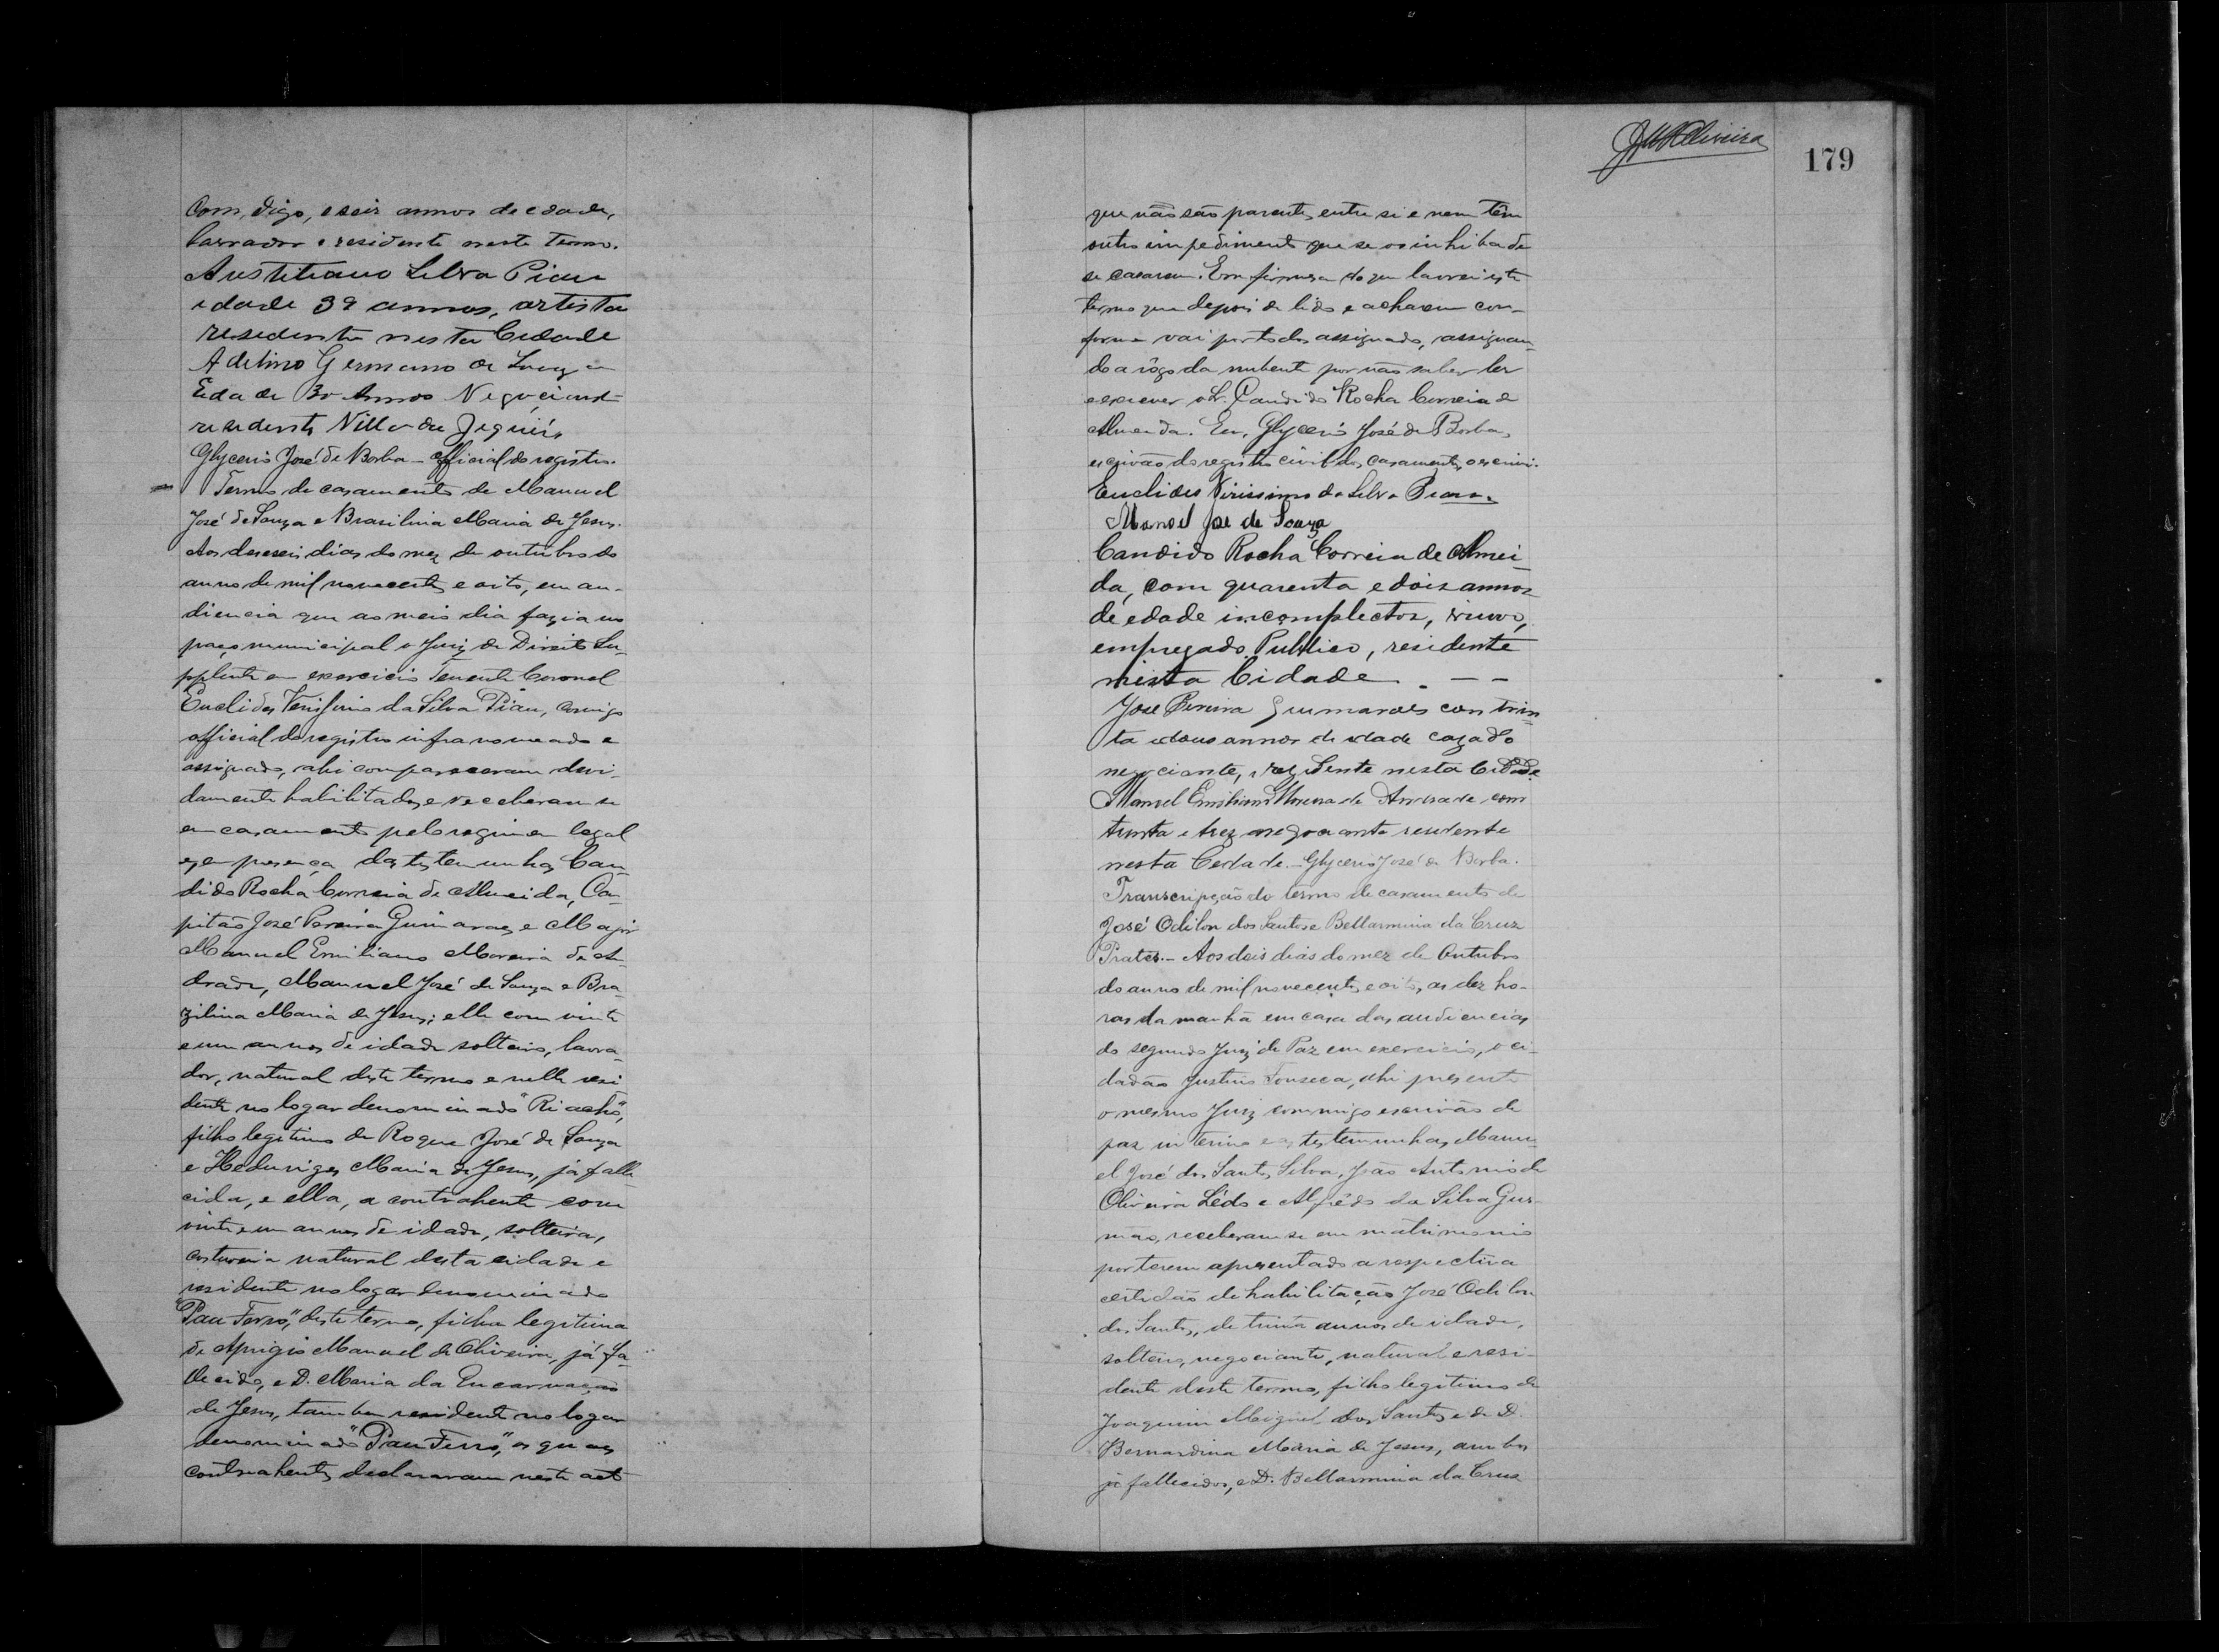 Com, digo, e seis annos de edade,
lavrador e residente neste termo.
Austitiano Silva Piau
idade 39 annos, artista
resedente nesta Cidade
Adelino Germano de Souza
Eda de 30 Annos Negociant
residente Villa de Jequié,
Glycerio José de Borba – official do registro.
Termo de casamento de Manuel
José de Souza e Brasilina Maria de Jesus.
Aos deseseis dias do mez de outubro do
anno de mil novecentos e oito, em au-
diencia que ao meio dia fazia no
paço municipal o Juiz de Direito Su-
pplente em exercicio Tenente Coronel
Euclides Verissimo da Silva Piau, comigo
official do registro infra nomeado e
assignado, ahi compareceram devi-
damente habilitados e receberam se
em casamento pelo regimen legal
e em presença das testemunhas Can-
dido Rocha Correia de Almeida, Ca-
pitão José Pereira Guimaraes e Major
Manuel Emiliano Moreira de An-
drade, Manuel José de Souza e Bra-
zilina Maria de Jesus; elle com vinte
e um annos de idade solteiro, lavra-
dor, natural deste termo e nelle resi
dente no logar denominado "Riacho",
filho legitimo de Roque José de Souza
e Heduviges Maria de Jesus, já falle
cida, e ella, a contrahente com
vinte e um annos de idade, solteira,
costureira natural desta cidade e
residente no logar denominado
"Pau Ferro", deste termo, filha legitima
de Aprigio Manuel de Oliveira, já fa-
llecido, e D. Maria da Encarnação
de Jesus, tambem residente no logar
denominado "Pau Ferro", os quaes
contrahentes declararam neste acto
179
que não são parentes entre si e nem têm
outro impedimento que se os inhiba de
se casarem. Em firmesa do que lavrei este
termo que depois de lido e acharem con-
forme vai por todos assignado, assignan-
do a rôgo da nubente por não saber ler
e escrever o Sr. Candido Rocha Correia de
Almeida. Eu, Glycerio José de Borba,
escrivão do registro civil dos casamentos o escrevi.
Euclides Virissimo da Silva Piau.
Manoel Joze de Souza
Candido Rocha Correia de Almei
da, com quarenta e dois annos
de edade incomplectos, viuvo,
empregado Publico, residente
nesta Cidade. – –
Jose Pereira Guimarães con trin
ta e dous annos de idade cazado
negociante, rezidente nesta Cidade
Manuel Emiliano Moreira de Andrade com
trinta e trez negociante residente
nesta Cedade. Glycerio José de Borba.
Transcripção do termo de casamento de
José Odilon dos Santos e Bellarmina da Cruz
Prates. – Aos dois dias do mez de Outubro
do anno de mil novecentos e oito, as dez ho-
ras da manhã em casa das audiencias
do segundo Juiz de Paz em exercicio, o ci-
dadão Justino Fonseca, ahi presente
o mesmo Juiz commigo escrivão de
paz interino e as testemunhas Manu-
el José dos Santos Silva, João Antonio de
Oliveira Lêdo e Alfrêdo da Silva Gus-
mão, receberam se em matrimonio
por terem apresentado a respectiva
certidão de habilitação José Odilon
dos Santos, de trinta annos de idade,
solteiro, negociante, natural e resi-
dente deste termo, filho legitimo de
Joaquim Miguel dos Santos e de D.
Bernardina Maria de Jesus, ambos
já fallecidos, e D. Bellarmina da Cruz